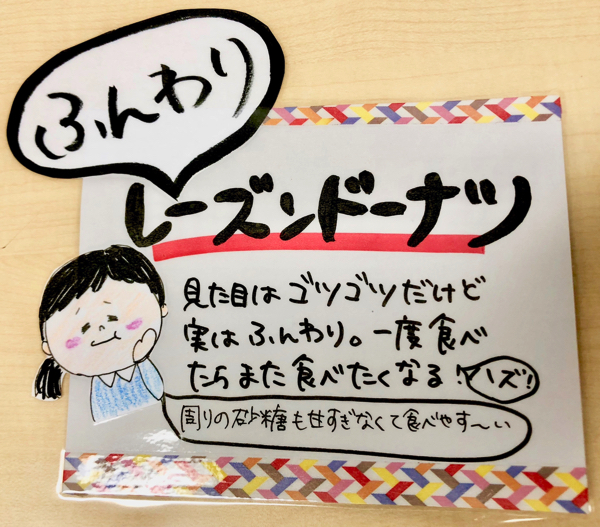 ふんわり
レーズンドーナツ
見た目はゴツゴツだけど
実はふんわり。一度食べ
たらまた食べたくなる!?ハズ!
周りの砂糖も甘すぎなくて食べやす〜い